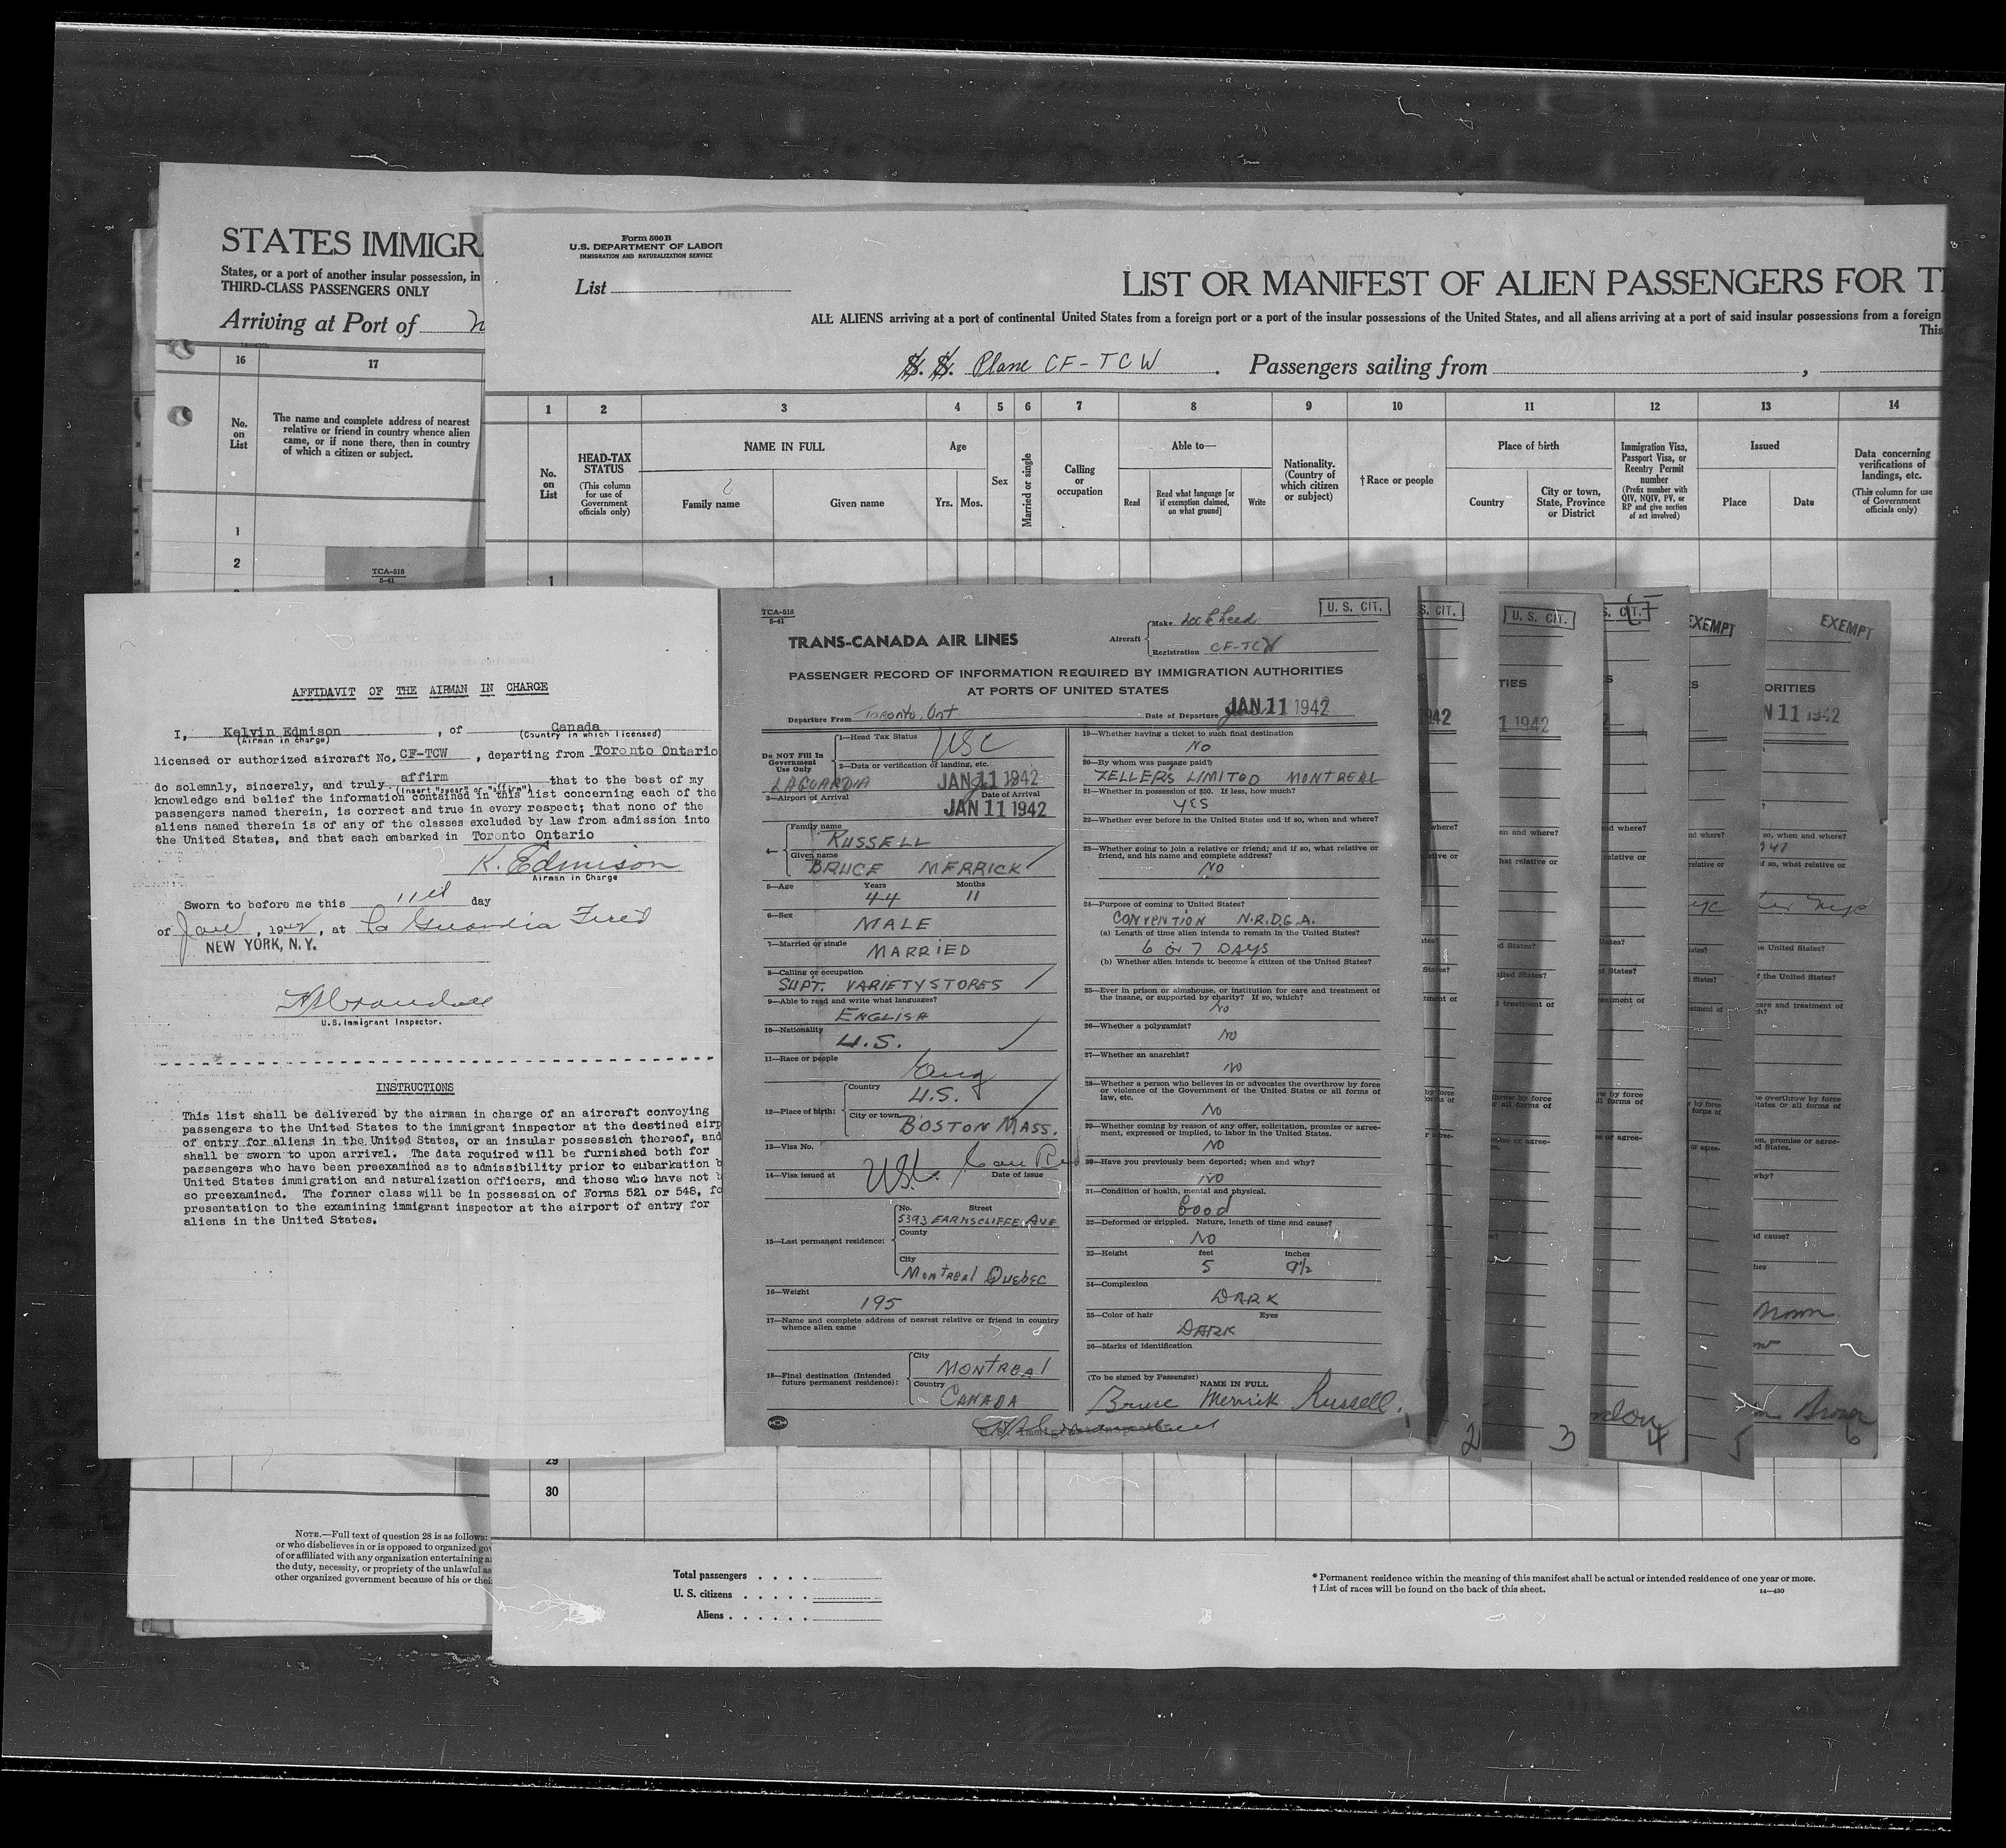 STATES IMMIGR
States, or a port of another insular possession, in
THIRD-CLASS PASSENGERS ONLY
Arriving at Port of
16
17
No. on List
The name and complete address of nearest
relative or friend in country whence alien
came, or if none there, then in country
of which a citizen or subject.
1
2
TCA-518
5-41
Form 500B
U.S. DEPARTMENT OF LABOR
IMMIGRATION AND NATURALIZATION SERVICE
List
LIST OR MANIFEST OF ALIEN PASSENGERS FOR T
ALL ALIENS arriving at a port of continental United States from a foreign port or a port of the insular possessions of the United States, and all aliens arriving at a port of said insular possessions from a foreign
This
S. S. Plane CF-TCW . Passengers sailing from ,
1 2 3 4 5 6 7 8 9 10 11 12 13 14
No. on List
HEAD-TAX STATUS
(This column for use of Government officials only)
NAME IN FULL
Family name
Given name
Age
Yrs. Mos.
Sex
Married or single
Calling or occupation
Able to—
Read
Read what language [or if exemption claimed, on what ground]
Write
Nationality. (Country of which citizen or subject)
†Race or people
Place of birth
Country
City or town, State, Province or District
Immigration Visa, Passport Visa, or Reentry Permit number
(Prefix number with QIV, NQIV, PV, or RP and give section of act involved)
Issued
Place
Date
Data concerning verifications of landings, etc.
(This column for use of Government officials only)
1
AFFIDAVIT OF THE AIRMAN IN CHARGE
I, Kelvin Edmison , of Canada
(Airman in charge) (Country in which licensed)
licensed or authorized aircraft No. CF-TCW , departing from Toronto Ontario
do solemnly, sincerely, and truly affirm that to the best of my
(insert "swear" or "affirm")
knowledge and belief the information contained in this list concerning each of the
passengers named therein, is correct and true in every respect; that none of the
aliens named therein is of any of the classes excluded by law from admission into
the United States, and that each embarked in Toronto Ontario
K. Edmison
Airman in Charge
Sworn to before me this 11th day
of Jan , 1942, at La Guardia Field
NEW YORK, N.Y.
U.S. Immigrant Inspector.
INSTRUCTIONS
This list shall be delivered by the airman in charge of an aircraft conveying
passengers to the United States to the immigrant inspector at the destined airp
of entry for aliens in the United States, or an insular possession thereof, and
shall be sworn to upon arrival. The data required will be furnished both for
passengers who have been preexamined as to admissibility prior to embarkation b
United States immigration and naturalization officers, and those who have not b
so preexamined. The former class will be in possession of Forms 521 or 548, fo
presentation to the examining immigrant inspector at the airport of entry for
aliens in the United States.
TCA-518
5-41
U. S. CIT.
TRANS-CANADA AIR LINES
Aircraft
Make Lockheed
Registration CF-TCW
PASSENGER RECORD OF INFORMATION REQUIRED BY IMMIGRATION AUTHORITIES
AT PORTS OF UNITED STATES
Departure From Toronto, Ont
Date of Departure JAN 11 1942
Do NOT Fill In
Government
Use Only
1—Head Tax Status USC
2—Data or verification of landing, etc.
LAGUARDIA JAN 11 1942
3—Airport of Arrival Date of Arrival
JAN 11 1942
4—
Family name
RUSSELL
Given name
BRUCE MERRICK
5—Age Years Months
44 11
6—Sex
MALE
7—Married or single
MARRIED
8—Calling or occupation
SUPT. VARIETY STORES
9—Able to read and write what languages?
ENGLISH
10—Nationality
U.S.
11—Race or people
Eng
12—Place of birth:
Country
U.S.
City or town
BOSTON MASS.
13—Visa No.
14—Visa issued at Date of issue
15—Last permanent residence:
No. Street
5393 EARNSCLIFFE AVE
County
City
MONTREAL QUEBEC
16—Weight
195
17—Name and complete address of nearest relative or friend in country
whence alien came
18—Final destination (Intended
future permanent residence):
City
MONTREAL
Country
CANADA
19—Whether having a ticket to such final destination
NO
20—By whom was passage paid?
ZELLERS LIMITED MONTREAL
21—Whether in possession of $50. If less, how much?
YES
22—Whether ever before in the United States and if so, when and where?
23—Whether going to join a relative or friend; and if so, what relative or
friend, and his name and complete address?
NO
24—Purpose of coming to United States?
CONVENTION N.R.D.G.A.
(a) Length of time alien intends to remain in the United States?
6 or 7 DAYS
(b) Whether alien intends to become a citizen of the United States?
25—Ever in prison or almshouse, or institution for care and treatment of
the insane, or supported by charity? If so, which?
NO
26—Whether a polygamist?
NO
27—Whether an anarchist?
NO
28—Whether a person who believes in or advocates the overthrow by force
or violence of the Government of the United States or all forms of
law, etc.
NO
29—Whether coming by reason of any offer, solicitation, promise or agree-
ment, expressed or implied, to labor in the United States.
NO
30—Have you previously been deported; when and why?
NO
31—Condition of health, mental and physical.
Good
32—Deformed or crippled. Nature, length of time and cause?
NO
33—Height feet inches
5 9½
34—Complexion
DARK
35—Color of hair Eyes
DARK
36—Marks of identification
(To be signed by Passenger)
NAME IN FULL
Bruce Merrick Russell.
1
S. CIT.
942
2
U. S. CIT.
TIES
1 1942
3
S. CIT.
4
EXEMPT
5
EXEMPT
ORITIES
N 11 1942
6
29
30
NOTE.—Full text of question 28 is as follows:
or who disbelieves in or is opposed to organized gov
of or affiliated with any organization entertaining a
the duty, necessity, or propriety of the unlawful as
other organized government because of his or thei
Total passengers . . . .
U. S. citizens . . . . .
Aliens . . . . . .
* Permanent residence within the meaning of this manifest shall be actual or intended residence of one year or more.
† List of races will be found on the back of this sheet.
14—430